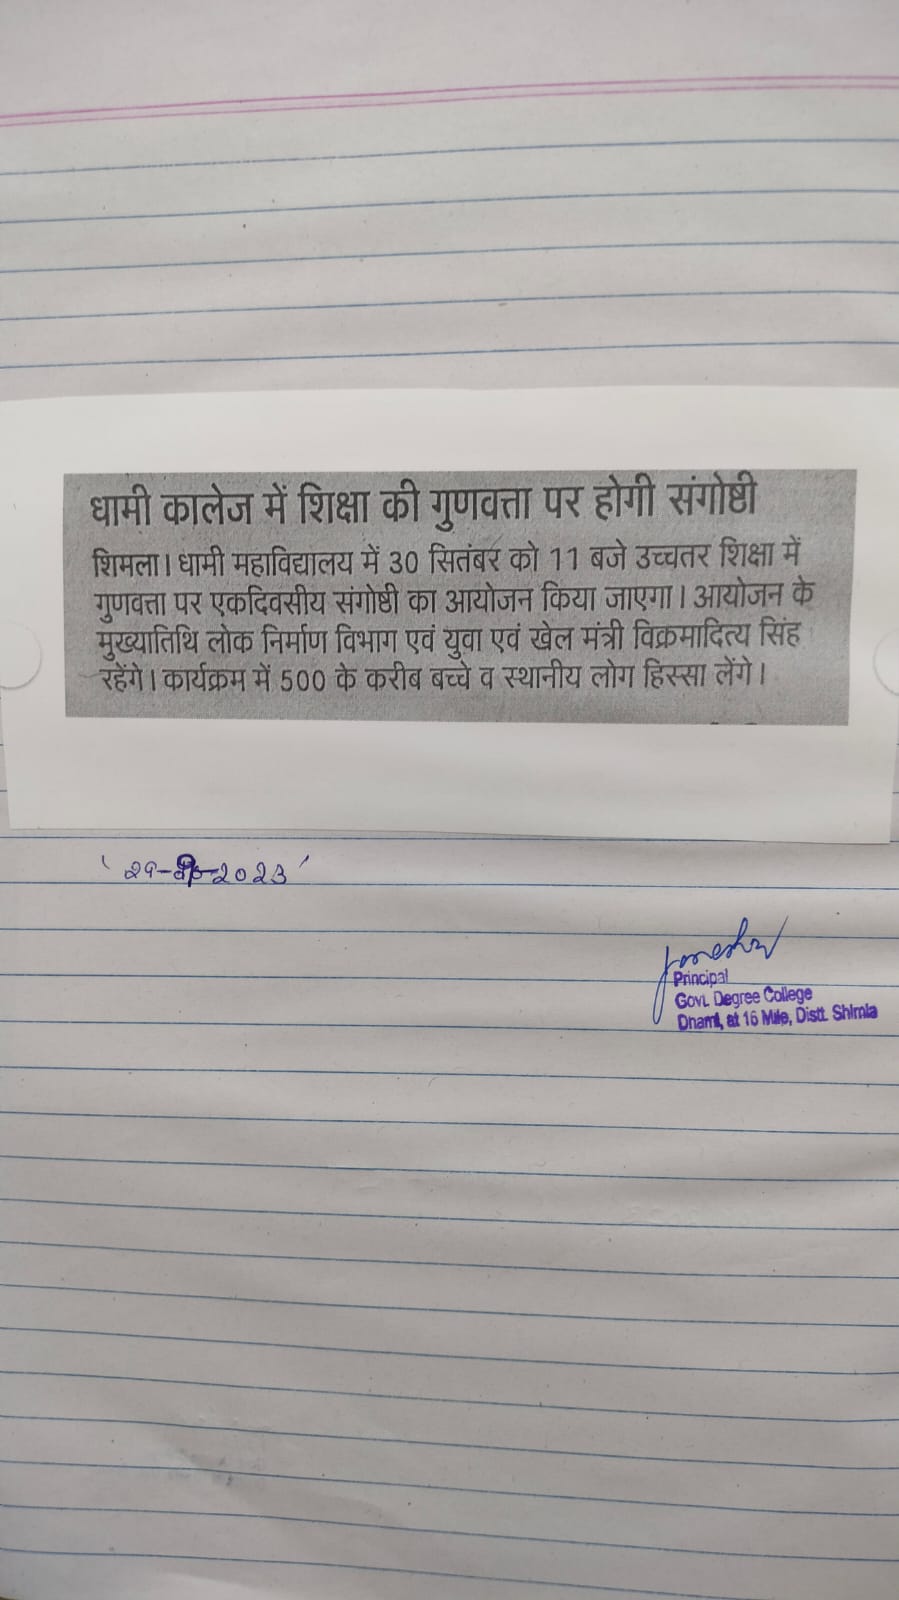 धामी कालेज में शिक्षा की गुणवत्ता पर होगी संगोष्ठी
शिमला। धामी महाविद्यालय में 30 सितंबर को 11 बजे उच्चतर शिक्षा में
गुणवत्ता पर एकदिवसीय संगोष्ठी का आयोजन किया जाएगा। आयोजन के
मुख्यातिथि लोक निर्माण विभाग एवं युवा एवं खेल मंत्री विक्रमादित्य सिंह
रहेंगे। कार्यक्रम में 500 के करीब बच्चे व स्थानीय लोग हिस्सा लेंगे।
Principal
Govt. Degree College
Dhami, at 16 Mile, Distt. Shimla